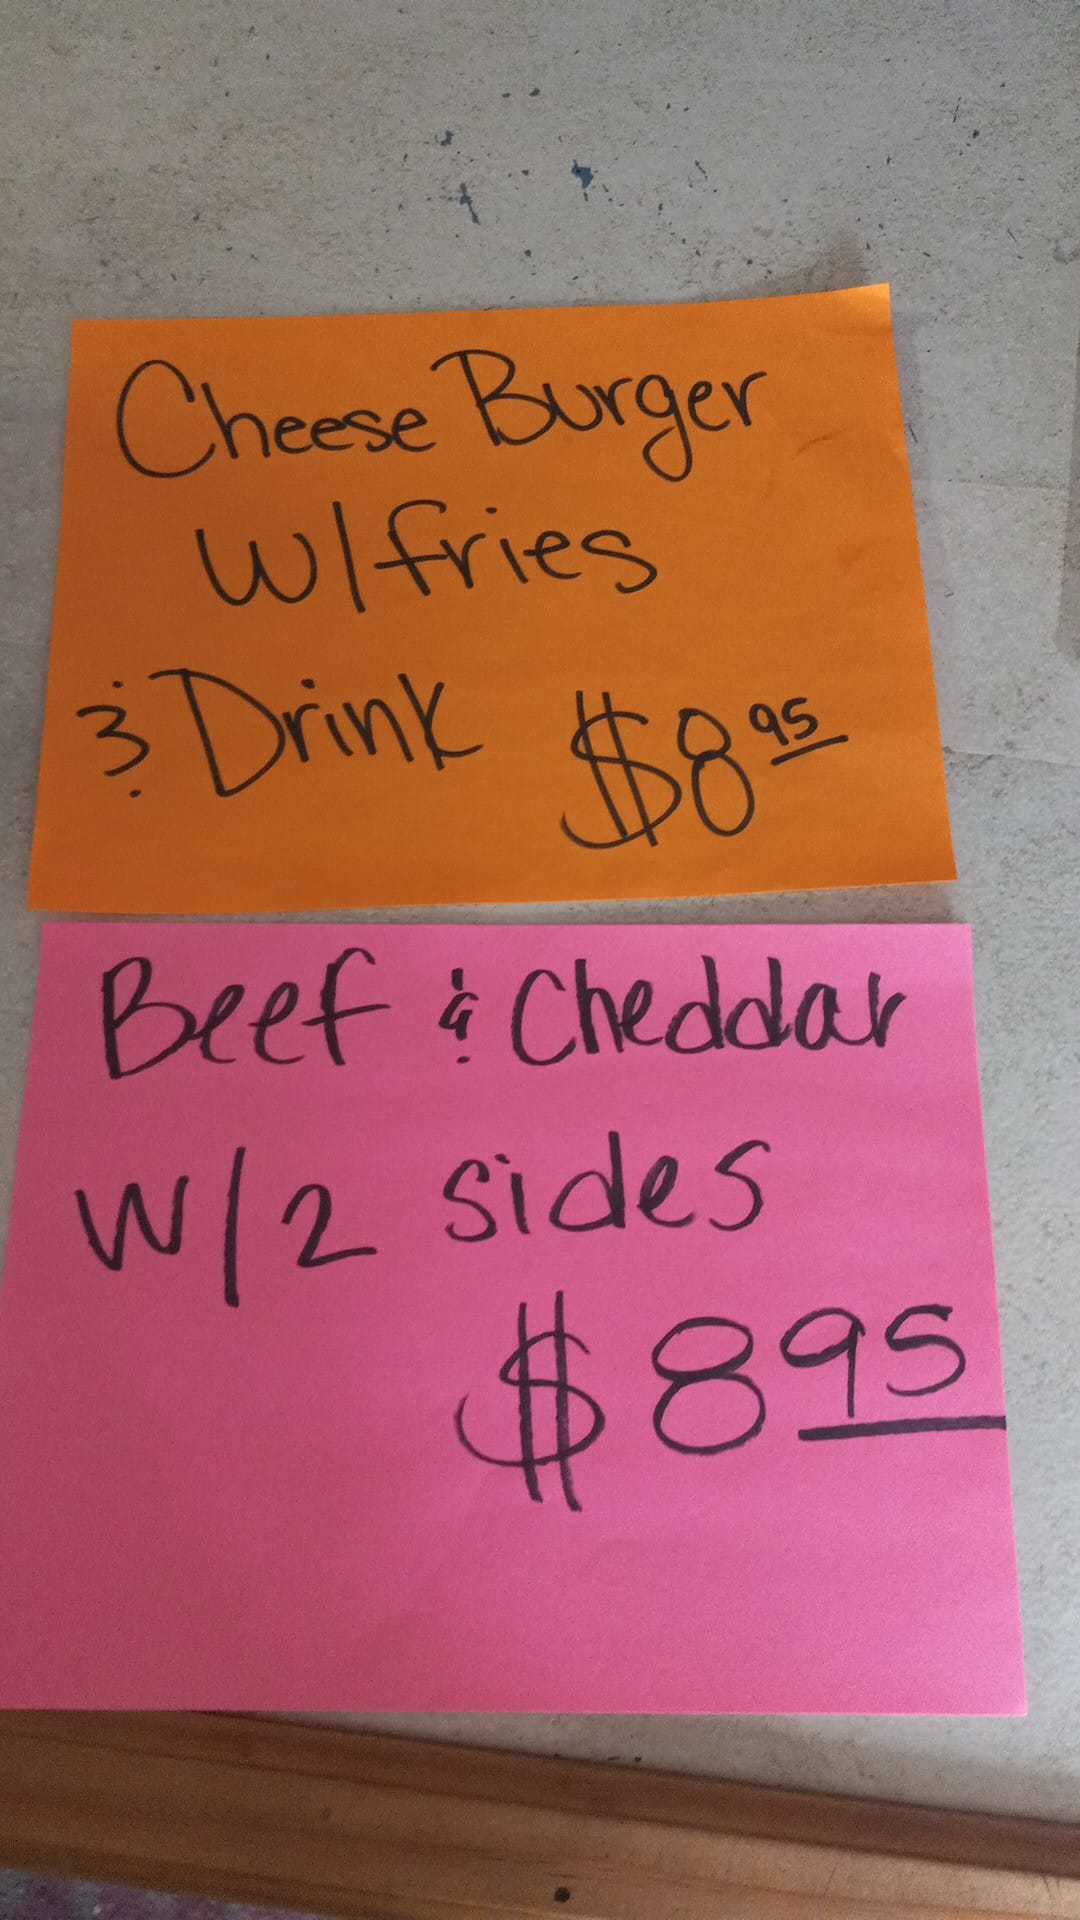 Cheese Burger
w/fries
& Drink $8 95
Beef & Cheddar
w/2 sides
$8 95